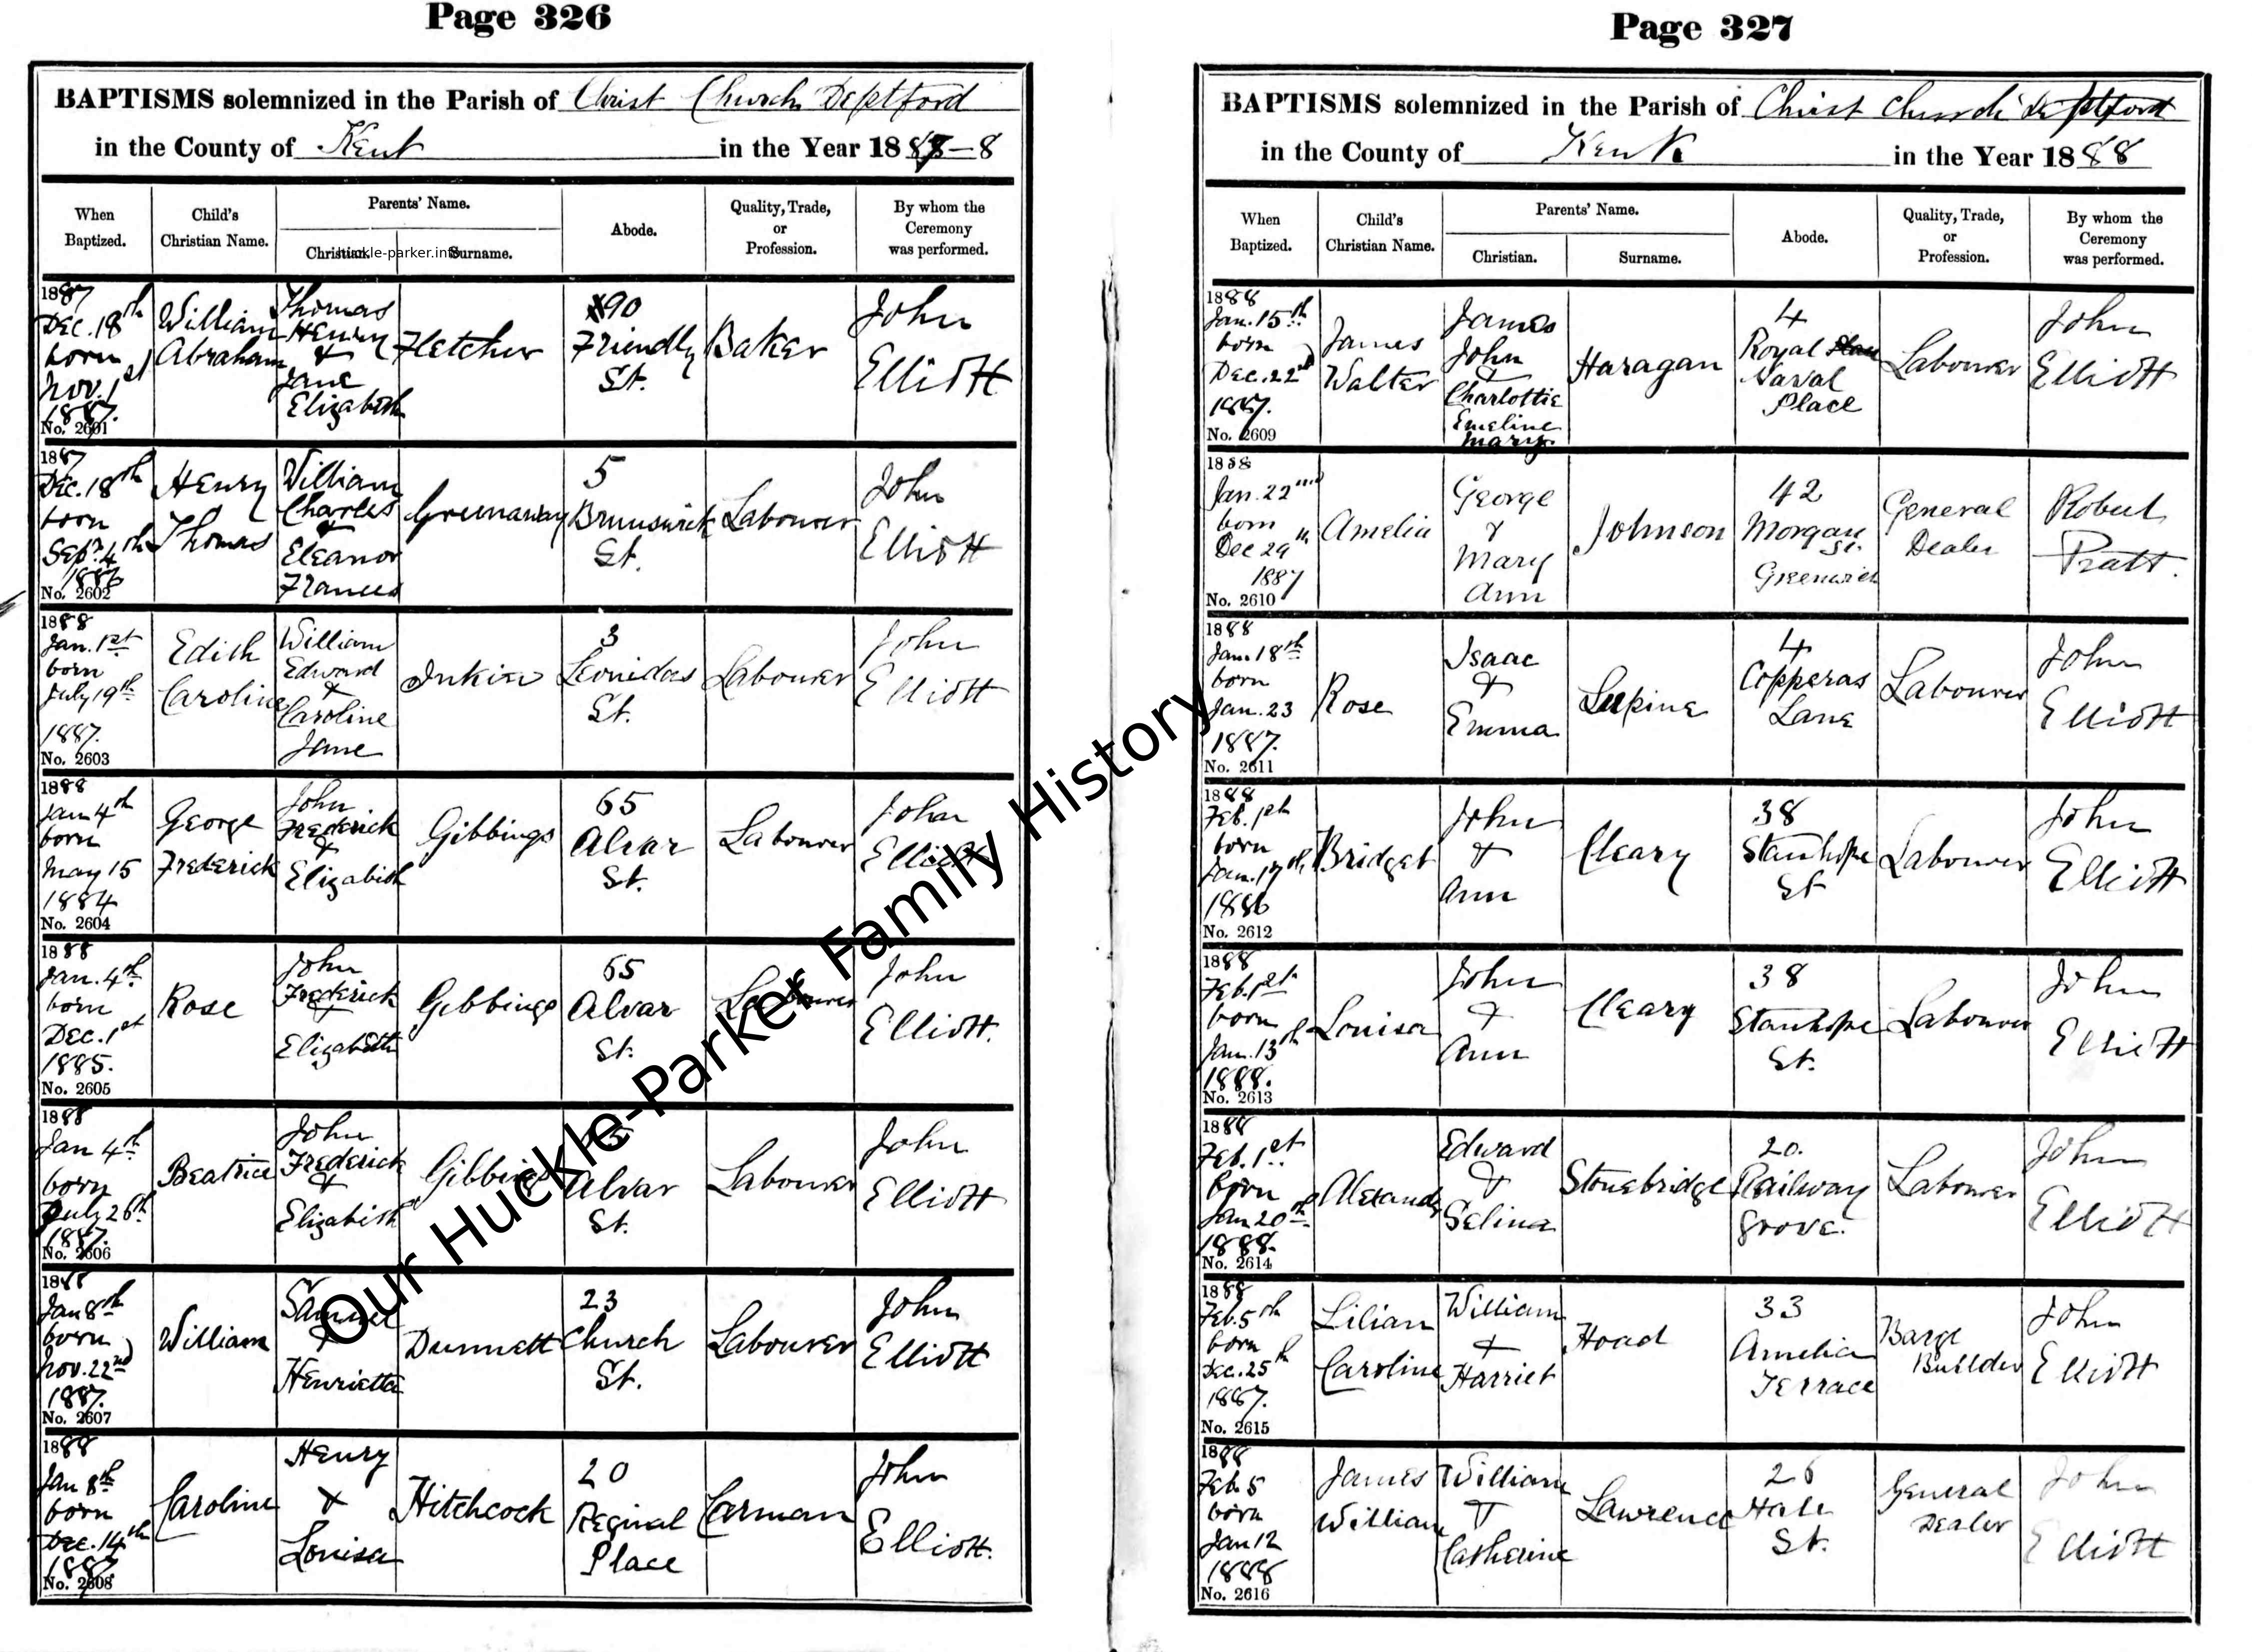 Page 326
BAPTISMS solemnized in the Parish of Christ Church Deptford
in the County of Kent in the Year 1887-8
When Baptized.
Child's Christian Name.
Parents' Name.
Christian.
Surname.
Abode.
Quality, Trade, or Profession.
By whom the Ceremony was performed.
1887
Dec. 18th
born
Nov. 1st
1887.
No. 2601
William
Abraham
Thomas
Henry
&
Jane
Elizabeth
Fletcher
90
Friendly
St.
Baker
John
Elliott
1887
Dec. 18th
born
Sept. 4th
1886
No. 2602
Henry
Thomas
William
Charles
&
Eleanor
Frances
Greenaway
5
Brunswick
St.
Labourer
John
Elliott
1888
Jan. 1st
born
July 19th
1887.
No. 2603
Edith
Caroline
William
Edward
&
Caroline
Jane
3
Leonidas
St.
Labourer
John
Elliott
1888
Jan 4th
born
May 15
1884
No. 2604
George
Frederick
John
Frederick
&
Elizabeth
Gibbings
65
Alvar
St.
Labourer
John
Elliott
1888
Jan. 4th
born
Dec. 1st
1885.
No. 2605
Rose
John
Frederick
&
Elizabeth
Gibbings
65
Alvar
St.
Labourer
John
Elliott.
1888
Jan 4th
born
July 26th
1887.
No. 2606
Beatrice
John
Frederick
&
Elizabeth
Gibbings
65
Alvar
St.
Labourer
John
Elliott
1888
Jan 8th
born
Nov. 22nd
1887.
No. 2607
William
Samuel
&
Henrietta
Dunnett
23
Church
St.
Labourer
John
Elliott
1888
Jan 8th
born
Dec. 14th
1887.
No. 2608
Caroline
Henry
&
Louisa
Hitchcock
20
Reginal
Place
Carman
John
Elliott.
Page 327
BAPTISMS solemnized in the Parish of Christ Church Deptford
in the County of Kent in the Year 1888
When Baptized.
Child's Christian Name.
Parents' Name.
Christian.
Surname.
Abode.
Quality, Trade, or Profession.
By whom the Ceremony was performed.
1888
Jan. 15th
born
Dec. 22nd
1887.
No. 2609
James
Walter
James
John
&
Charlottie
Emeline
Mary.
Haragan
4
Royal
Naval
Place
Labourer
John
Elliott
1888
Jan. 22nd
born
Dec 29th
1887
No. 2610
Amelia
George
&
Mary
Ann
Johnson
42
Morgan
St.
Greenwich
General
Dealer
Robert
Pratt.
1888
Jan. 18th
born
Jan. 23
1887.
No. 2611
Rose
Isaac
&
Emma
Lupine
4
Copperas
Lane
Labourer
John
Elliott
1888
Feb. 1st
born
Jan. 17th
1886
No. 2612
Bridget
John
&
Ann
Cleary
38
Stanhope
St
Labourer
John
Elliott
1888
Feb. 1st
born
Jan. 13th
1888.
No. 2613
Louisa
John
&
Ann
Cleary
38
Stanhope
St.
Labourer
John
Elliott
1888
Feb. 1st
born
Jan 20th
1888.
No. 2614
Edward
&
Selina
Stonebridge
20.
Railway
Grove.
Labourer
John
Elliott
1888
Feb. 5th
born
Dec. 25th
1887.
No. 2615
Lilian
Caroline
William
&
Harriet
Hoad
33
Amelia
Terrace
Barge
Builder
John
Elliott
1888
Feb. 5
born
Jan 12
1888
No. 2616
James
William
William
&
Catherine
Lawrence
26
Hale
St.
General
Dealer
John
Elliott
Our Huckle-Parker Family History
huckle-parker.info